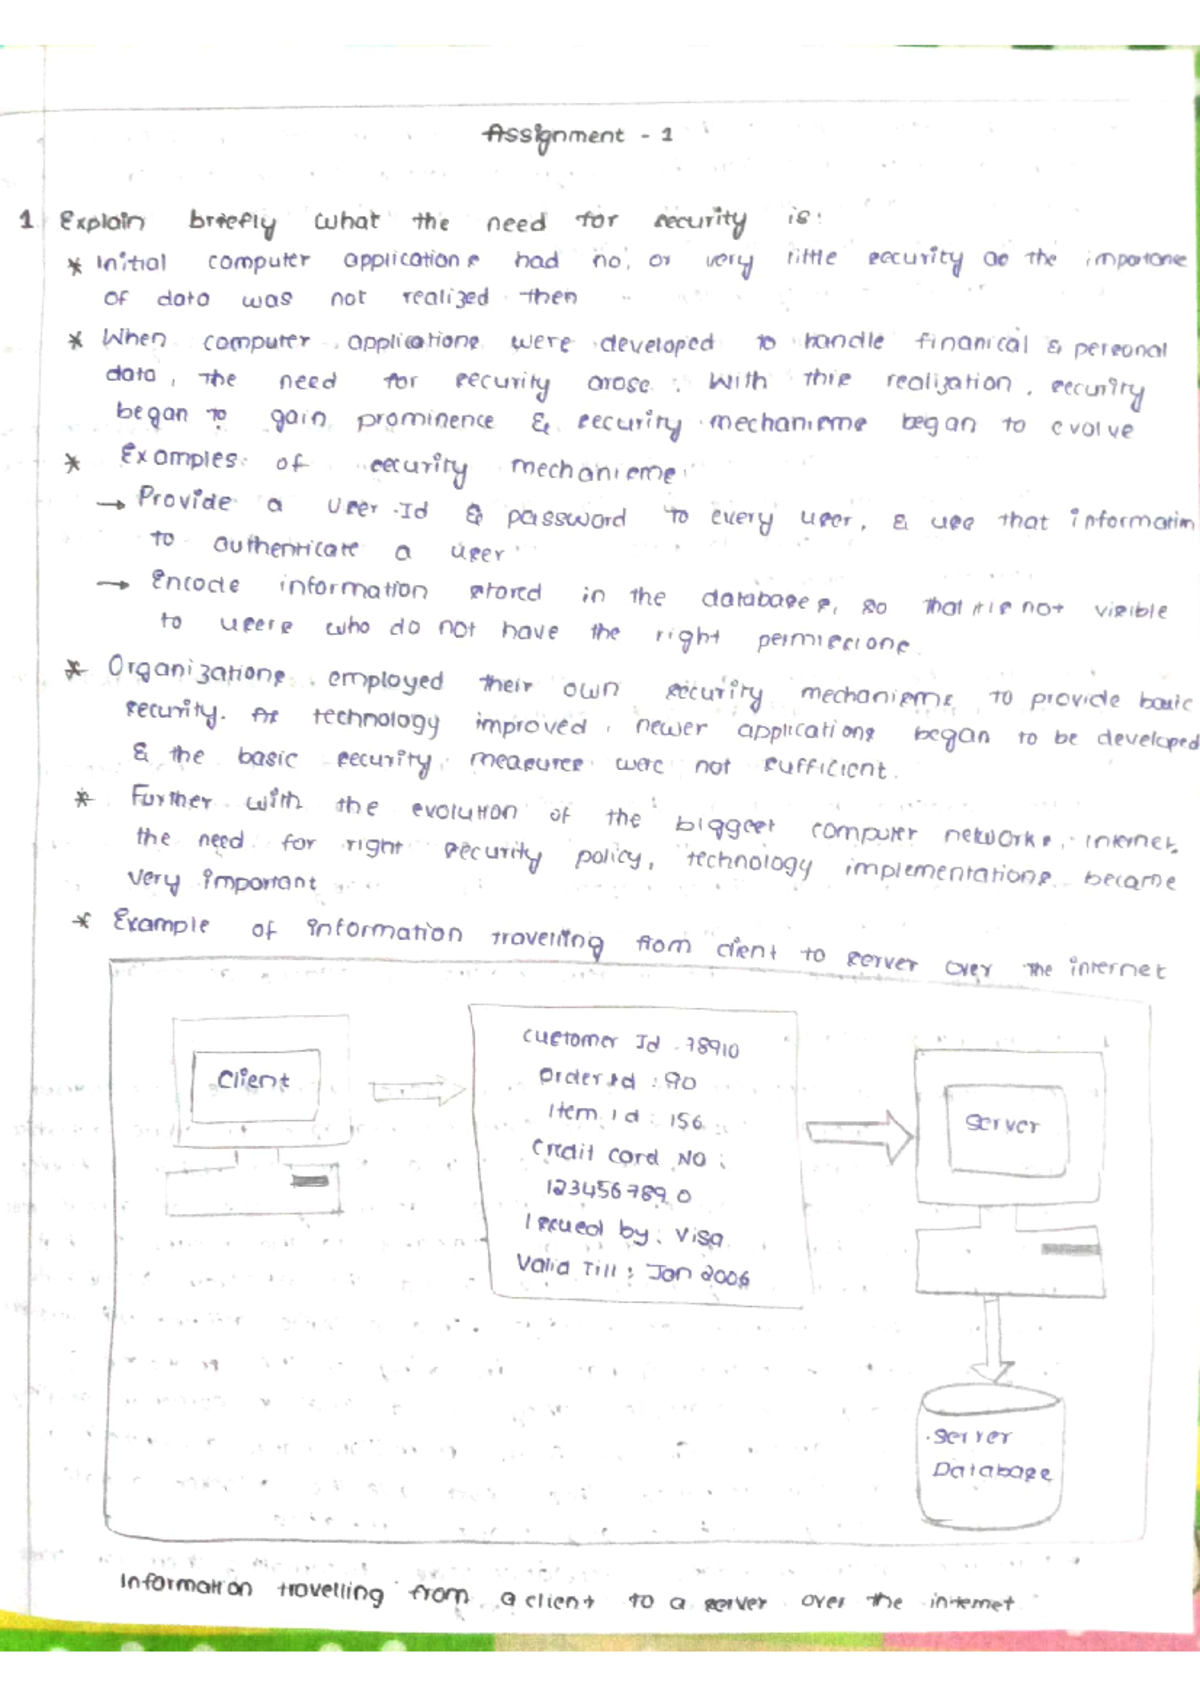 Assignment - 1
1 Explain briefly what the need for security is:
* Initial computer applications had no, or very little security as the importance
of data was not realized then
* When computer applications were developed to handle finanical & personal
data, the need for security arose. With this realization, security
began to gain prominence & security mechanisms began to evolve
* Examples of security mechanisms
→ Provide a User-Id & password to every user, & use that information
to authenticate a user
→ Encode information stored in the databases, so that it is not visible
to users who do not have the right permissions
* Organizations employed their own security mechanisms to provide basic
security. As technology improved, newer applications began to be developed
& the basic security measures were not sufficient.
* Further with the evolution of the biggest computer networks, internet,
the need for right security policy, technology implementations became
very important
* Example of information travelling from client to server over the internet
Client
Customer Id 78910
Order Id : 90
Item id : 156
Credit Card NO :
1234567890
Issued by : Visa
Valid Till : Jan 2006
Server
Server
Database
Information travelling from a client to a server over the internet